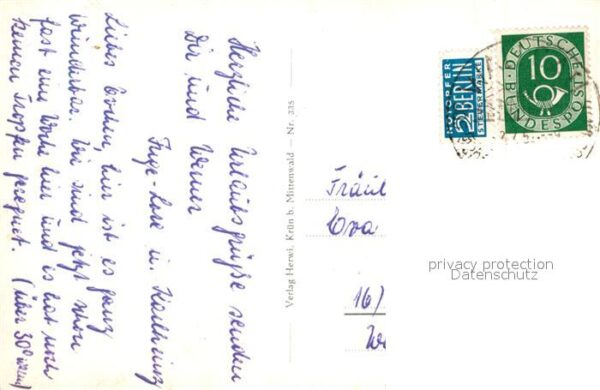 Liebes Evchen, hier ist es ganz
wunderbar. Wir sind jetzt schon
fast eine Woche hier und es hat noch
keinen Tropfen geregnet. (über 30° warm)
Herzliche Urlaubsgrüße senden
Dir und Werner
Inge-Lore u.
Verlag Herwi, Krün b. Mittenwald — Nr. 235
NOTOPFER
2 BERLIN
STEUERMARKE
DEUTSCHE
BUNDESPOST
10
Fräul
Eva
16)
privacy protection
Datenschutz